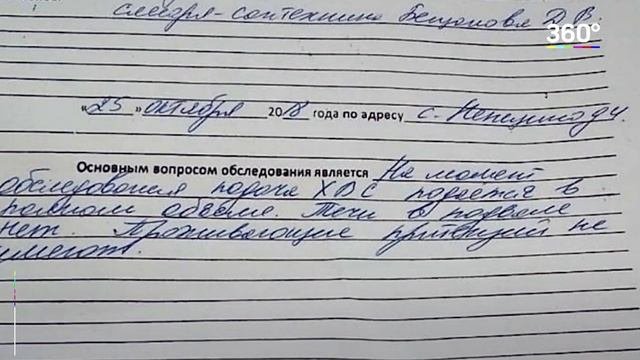 слесаря-сантехника Бещонова Д В.
360°
«25» октября 2018 года по адресу с. Непецино д 4
Основным вопросом обследования является На момент
обследования подача ХВС подается в
полном объеме. Течи в подвале
нет. Проживающие притензий не
имеют.